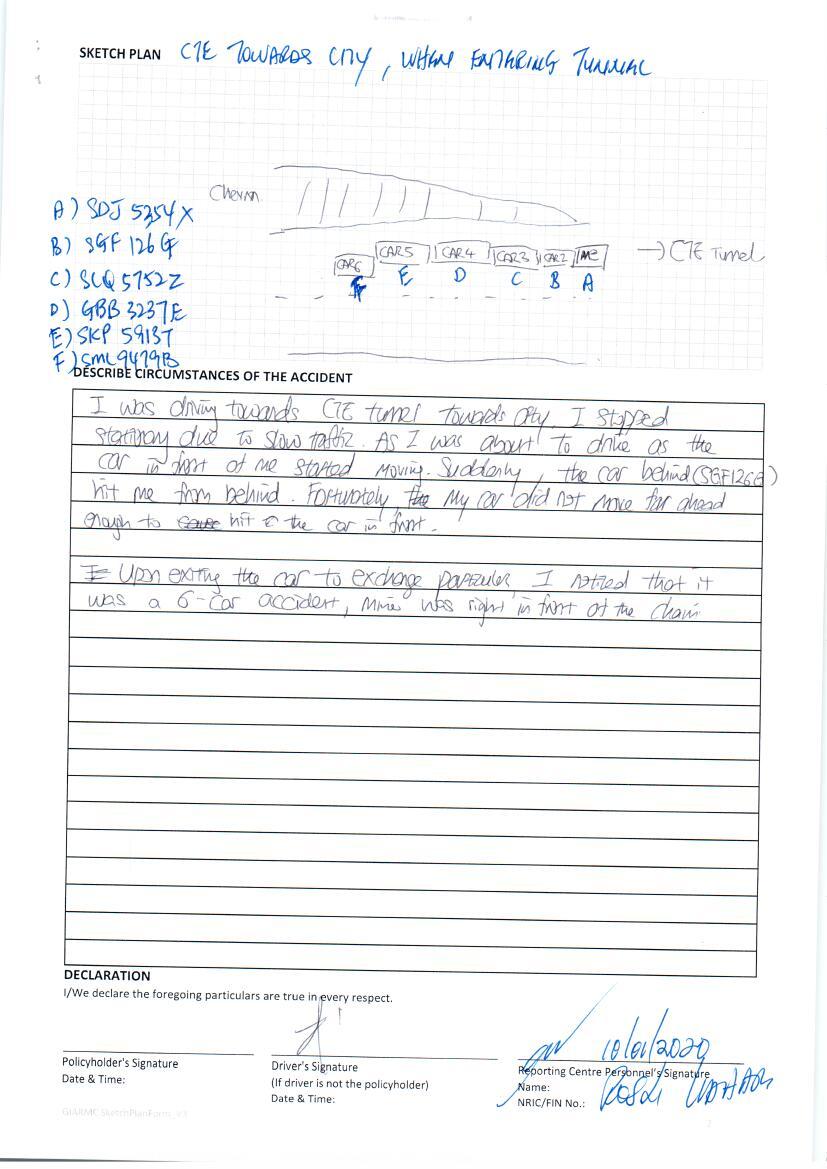 SKETCH PLAN CTE TOWARDS CITY, WHEN ENTERING TUNNEL
Chevron
A) SDJ 5254X
B) SGF 126G
C) SLQ 5752Z
D) GBB 3237E
E) SKP 5913T
F) SML9479B
CAR6 CAR5 CAR4 CAR3 CAR2 ME → CTE Tunnel
F E D C B A
DESCRIBE CIRCUMSTANCES OF THE ACCIDENT
I was driving towards CTE tunnel towards city. I stopped
stationary due to slow traffic. As I was about to drive as the
car in front of me started moving. Suddenly, the car behind (SGF126G)
hit me from behind. Fortunately, my car did not move far ahead
enough to cause hit the car in front.
Upon exiting the car to exchange particulars, I noticed that it
was a 6-car accident, mine was right in front of the chain
DECLARATION
I/We declare the foregoing particulars are true in every respect.
10/01/2020
Policyholder's Signature
Date & Time:
Driver's Signature
(If driver is not the policyholder)
Date & Time:
Reporting Centre Personnel's Signature
Name:
NRIC/FIN No.:
GIARMC SketchPlanForm_V3
2